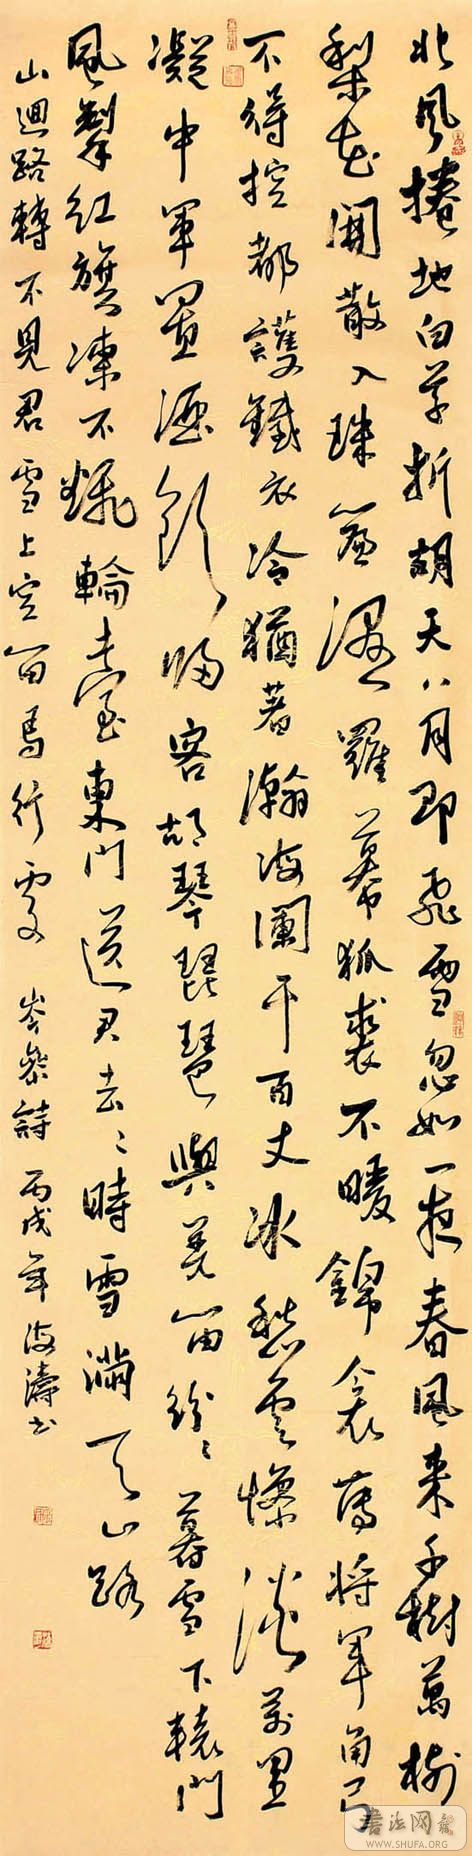 北風捲地白草折胡天八月即飛雪忽如一夜春風來千樹萬樹
梨花開散入珠簾濕羅幕狐裘不暖錦衾薄將軍角弓
不得控都護鐵衣冷猶著瀚海闌干百丈冰愁雲慘淡萬里
凝中軍置酒飲歸客胡琴琵琶與羌笛紛〻暮雪下轅門
風掣紅旗凍不翻輪臺東門送君去〻時雪滿天山路
山迴路轉不見君雪上空留馬行處 岑參詩 丙戌年海濤書
書法网
WWW.SHUFA.ORG